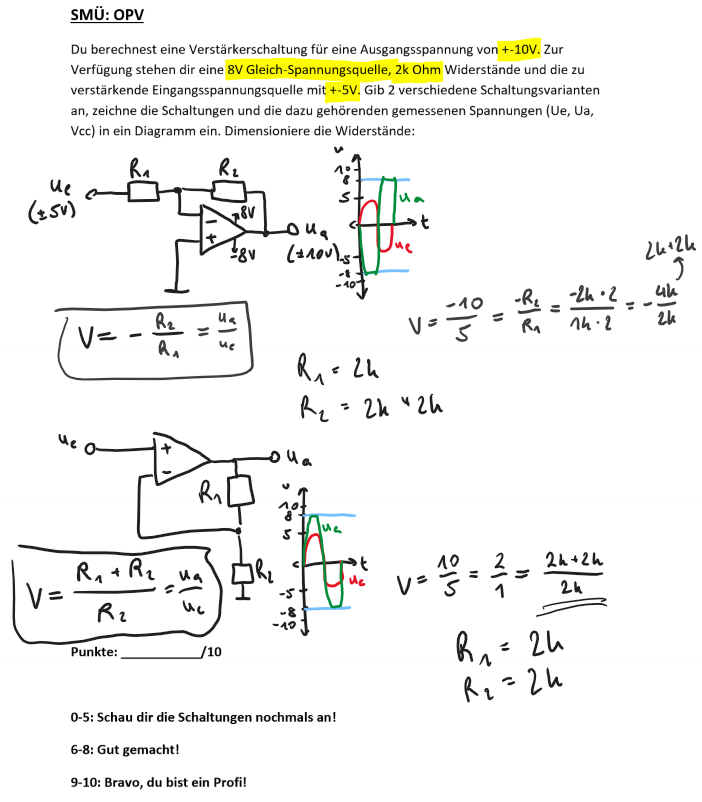 SMÜ: OPV
Du berechnest eine Verstärkerschaltung für eine Ausgangsspannung von +-10V. Zur
Verfügung stehen dir eine 8V Gleich-Spannungsquelle, 2k Ohm Widerstände und die zu
verstärkende Eingangsspannungsquelle mit +-5V. Gib 2 verschiedene Schaltungsvarianten
an, zeichne die Schaltungen und die dazu gehörenden gemessenen Spannungen (Ue, Ua,
Vcc) in ein Diagramm ein. Dimensioniere die Widerstände:
R1 R2
ue
(±5V)
8V
-8V
- +
ua
(±10V)
u
10
8
5
-5
-8
-10
ua
t
ue
V = - R2/R1 = ua/ue
2k+2k
V = -10/5 = -R2/R1 = -2k·2/1k·2 = - 4k/2k
R1 = 2k
R2 = 2k + 2k
ue
+ -
ua
R1
R2
u
10
8
5
-5
-8
-10
ua
t
ue
V = R1 + R2/R2 = ua/ue
V = 10/5 = 2/1 = 2k+2k/2k
R1 = 2k
R2 = 2k
Punkte: __________/10
0-5: Schau dir die Schaltungen nochmals an!
6-8: Gut gemacht!
9-10: Bravo, du bist ein Profi!